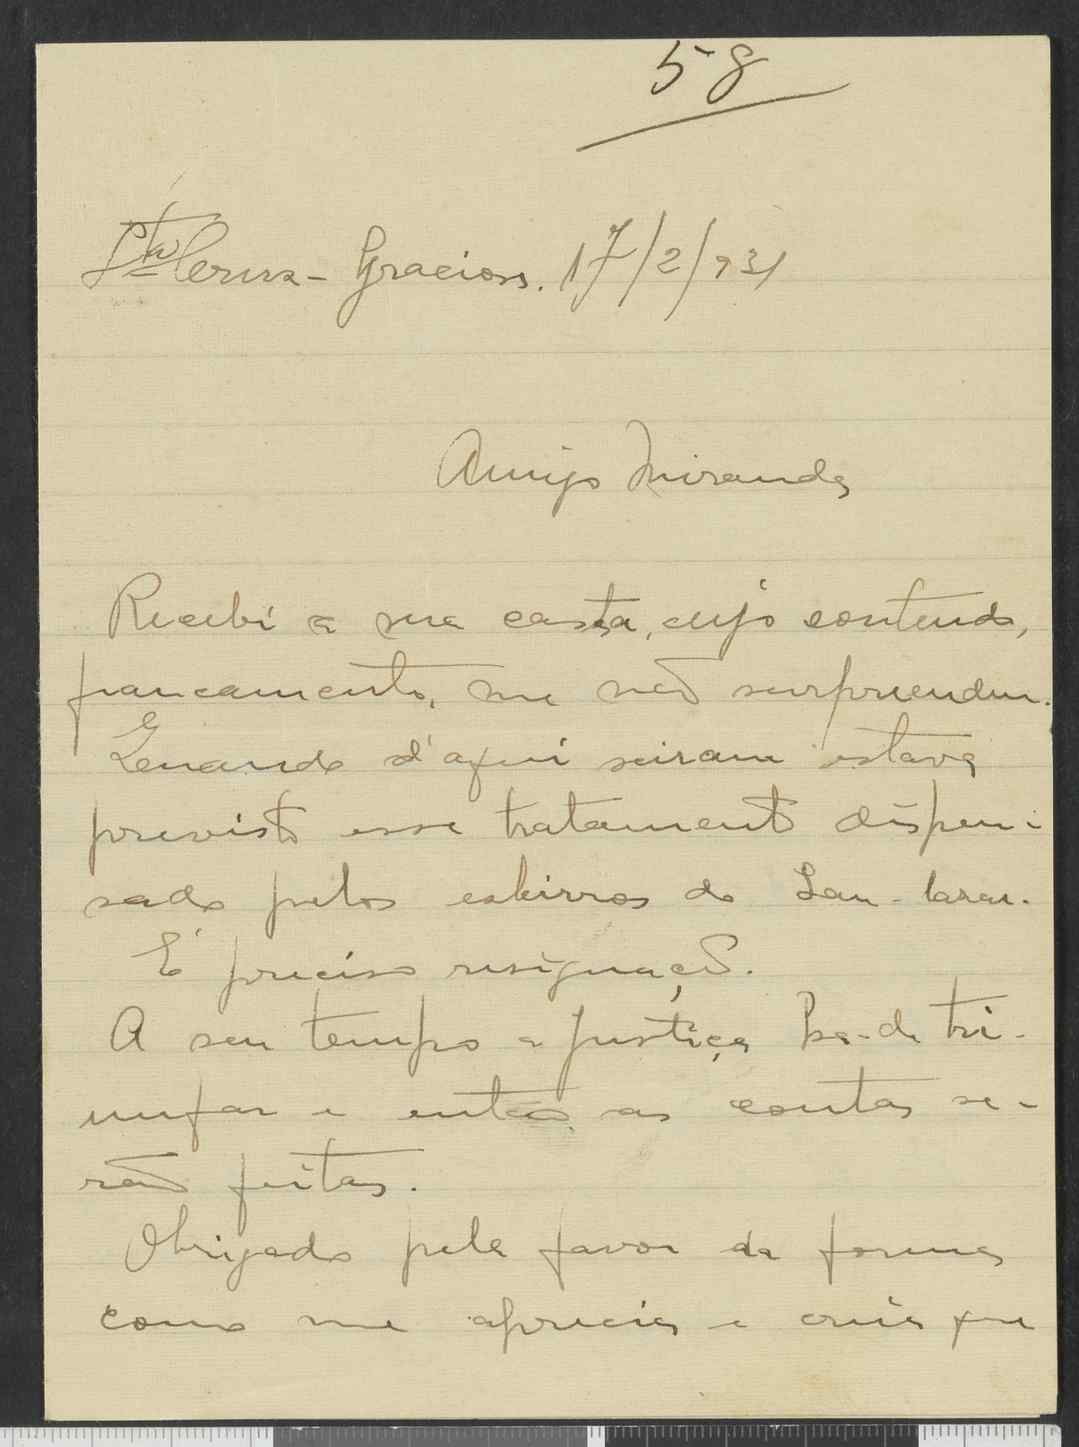 58
Sta Cruz - Graciosa. 17/2/931
Amigo Miranda
Recebi a sua carta, cujo contendo,
francamente, me não surpreendeu.
Quando d'aqui sairam estava
previsto esse tratamento dispen-
sado pelos esbirros do
É preciso resignação.
A seu tempo a justiça ha-de tri-
unfar e então as contas se-
rão feitas.
Obrigado pela favor da forma
como me aprecia e creia que